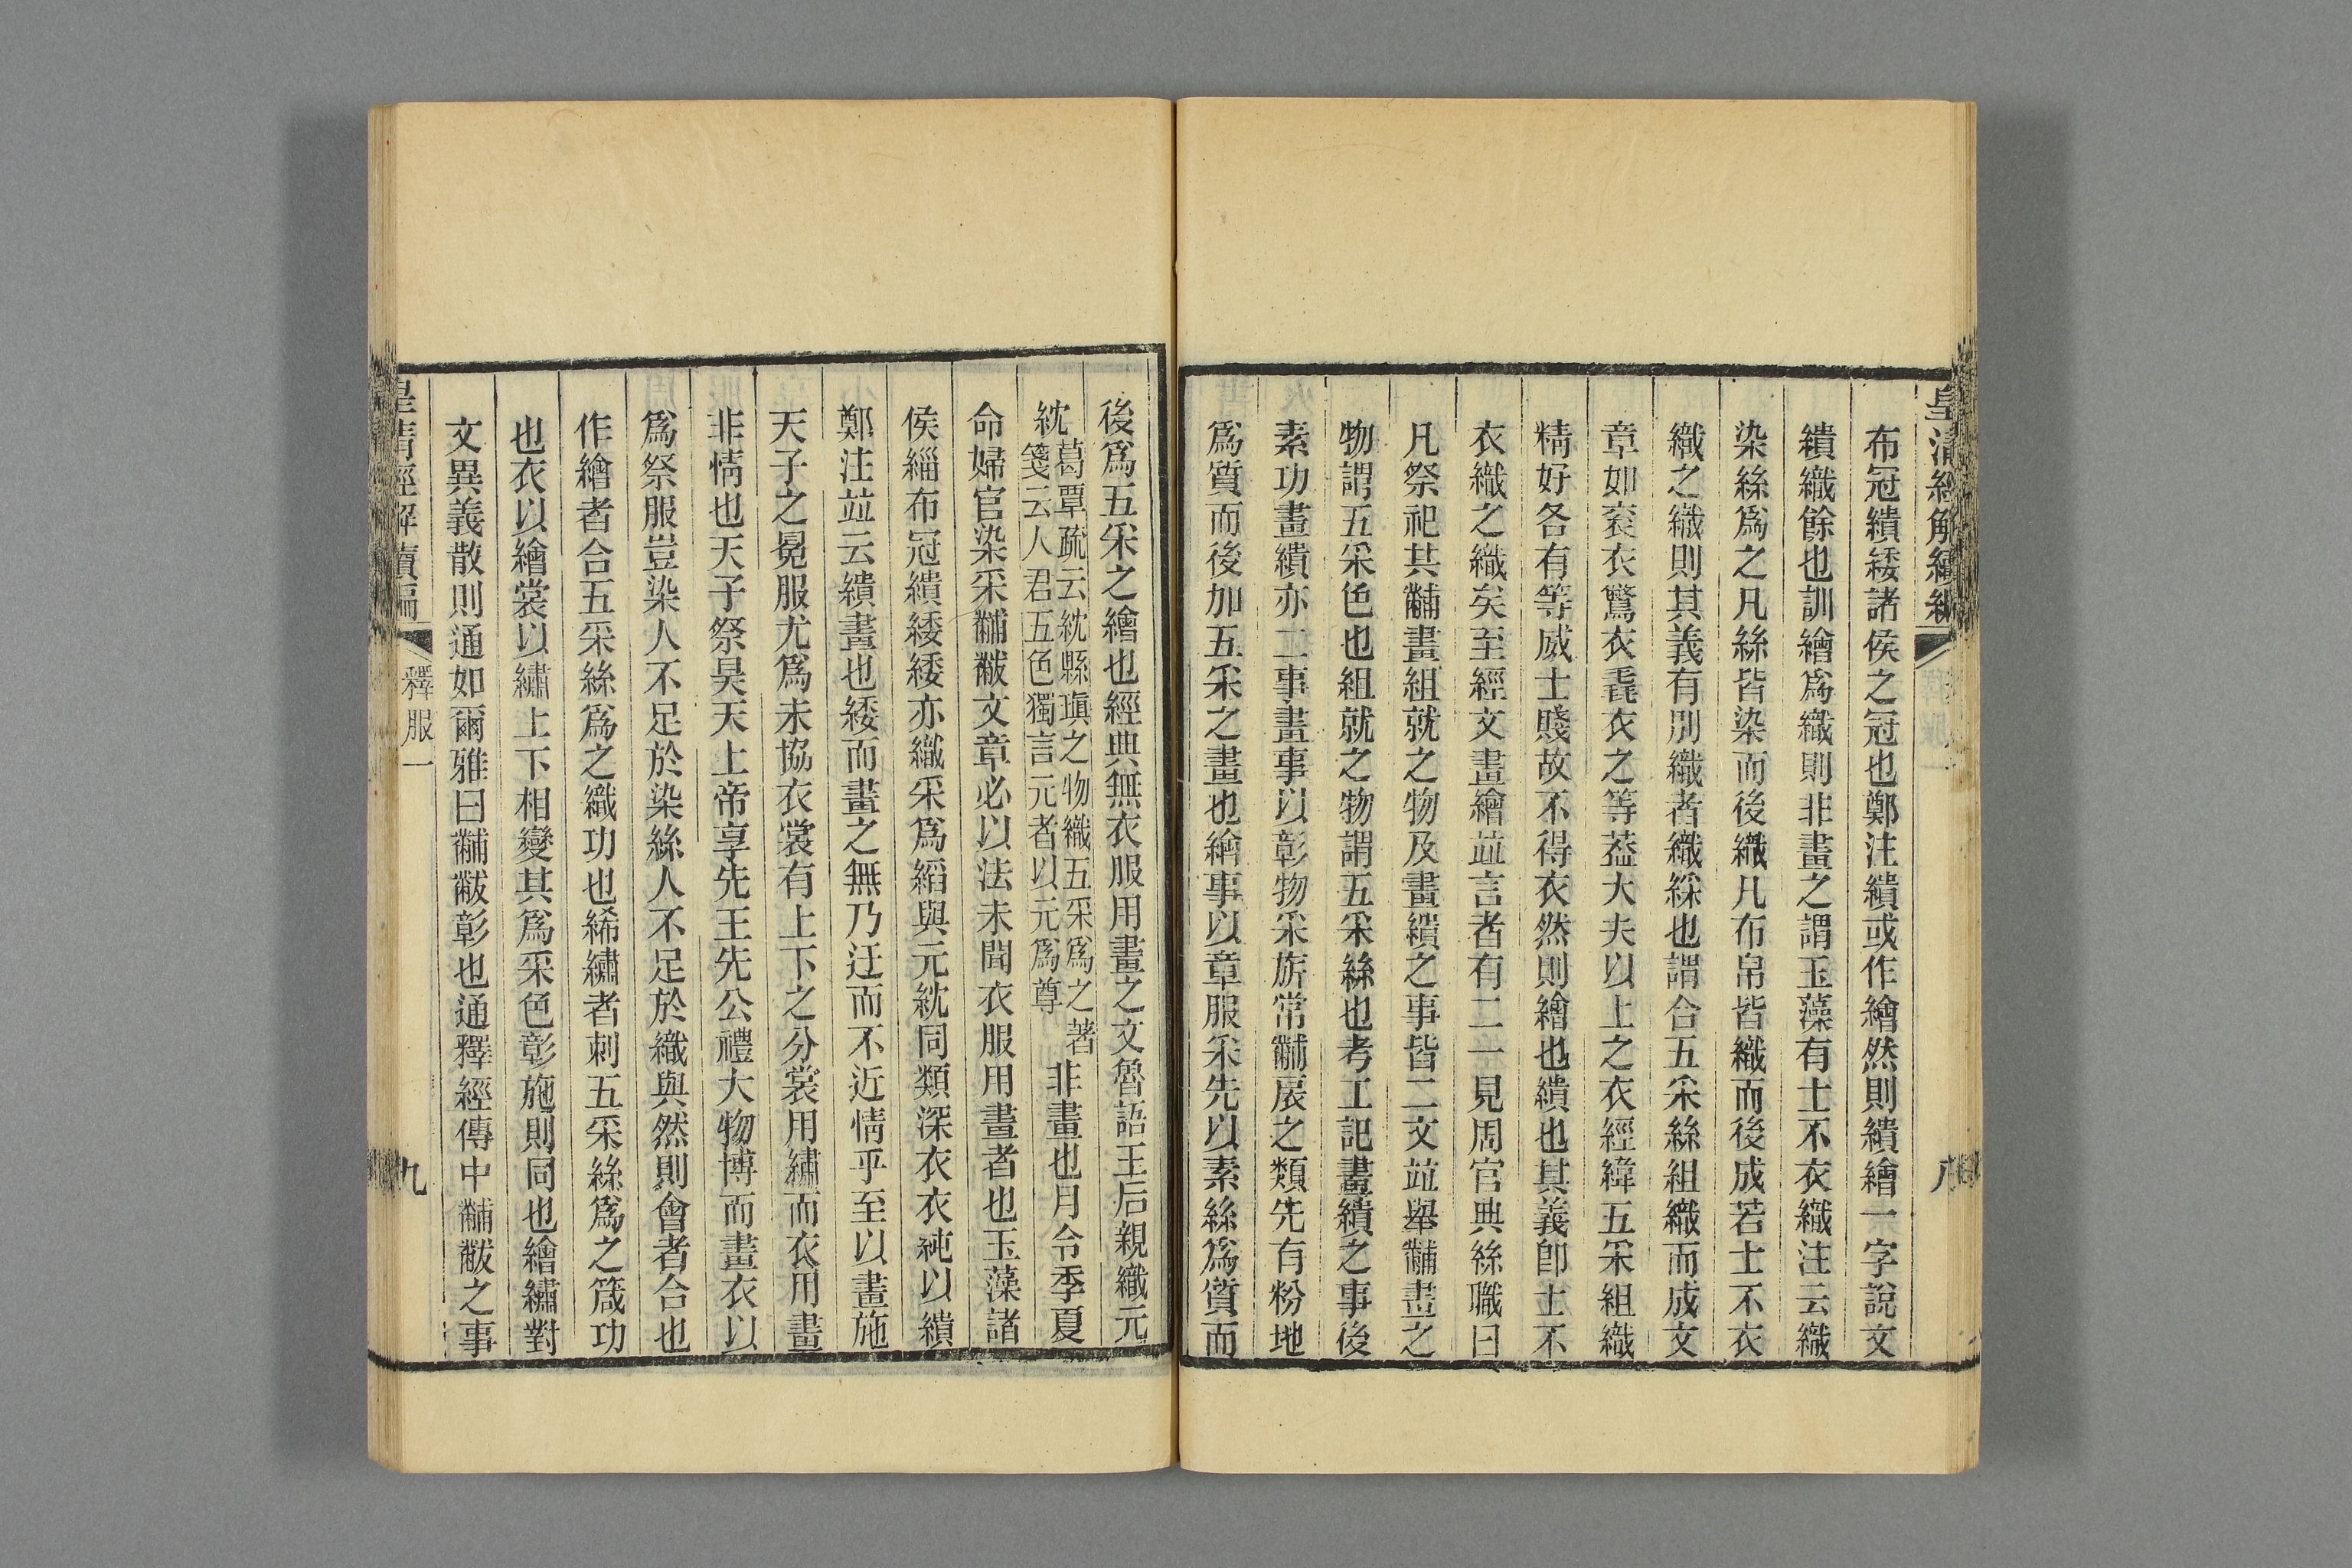 皇清經解續編
八
布冠繢緌諸侯之冠也鄭注繢或作繪然則繢繪一字說文
繢織餘也訓繪爲織則非畫之謂玉藻有士不衣織注云織
染絲爲之凡絲皆染而後織凡布帛皆織而後成若士不衣
織之織則其義有別織者織綵也謂合五采絲組織而成文
章如袞衣驚衣毳衣之等葢大夫以上之衣經緯五采組織
精好各有等威士賤故不得衣然則繪也繢也其義卽士不
衣織之織矣至經文畫繪竝言者有二一見周官典絲職曰
凡祭祀其黼畫組就之物及畫繢之事皆二文竝舉黼畫之
物謂五采色也組就之物謂五采絲也考工記畫繢之事後
素功畫繢亦二事畫事以彰物采旂常黼扆之類先有粉地
爲質而後加五采之畫也繪事以章服采先以素絲爲質而
後爲五采之繪也經典無衣服用畫之文魯語王后親織元
紞葛覃疏云紞縣瑱之物織五采爲之著
箋云人君五色獨言元者以元爲尊
非畫也月令季夏
命婦官染采黼黻文章必以法未聞衣服用畫者也玉藻諸
侯緇布冠繢緌緌亦織采爲縚與元紞同類深衣衣純以繢
鄭注竝云繢畫也緌而畫之無乃迂而不近情乎至以畫施
天子之冕服尤爲未協衣裳有上下之分裳用繡而衣用畫
非情也天子祭昊天上帝享先王先公禮大物博而畫衣以
爲祭服豈染人不足於染絲人不足於織與然則會者合也
作繪者合五采絲爲之織功也絺繡者刺五采絲爲之箴功
也衣以繪裳以繡上下相變其爲采色彰施則同也繪繡對
文異義散則通如爾雅曰黼黻彰也通釋經傳中黼黻之事
皇清經解續編
釋服一
九